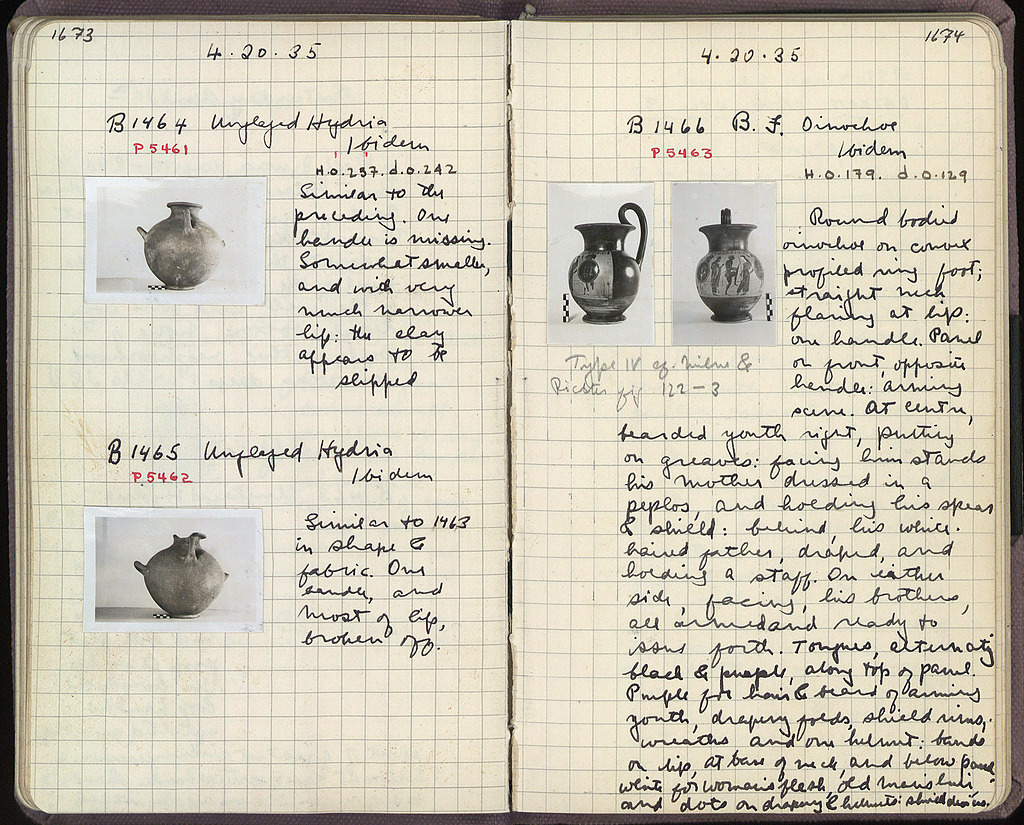 1673
4.20.35
B 1464 Unglazed Hydria
P 5461
Ibidem
H.0.257. d.0.242
Similar to the
preceding. One
handle is missing.
Somewhat smaller,
and with very
much narrower
lip: the clay
appears to be
slipped
B 1465 Unglazed Hydria
P 5462
Ibidem
Similar to 1463
in shape &
fabric. One
handle, and
most of lip,
broken off.
1674
4.20.35
B 1466 B.F. Oinochoe
P 5463
Ibidem
H.0.179. d.0.129
Round bodied
oinochoe on convex
profiled ring foot;
straight neck
flaring at lip:
one handle. Panel
on front, opposite
handle: arming
scene. At centre,
bearded youth right, putting
on greaves: facing him stands
his mother dressed in a
peplos, and holding his spear
& shield: behind, his white-
haired father, draped, and
holding a staff. On either
side, facing, his brothers,
all armed and ready to
issue forth. Tongues, alternately
black & purple, along top of panel.
Purple for hair & beard of arming
youth, drapery folds, shield rims,
wreaths and one helmet: bands
on lip, at base of neck, and below panel
white for woman's flesh, old man's hair
and dots on drapery & helmets: shield devices.
Type IV cf. Milne &
Richter fig 122-3